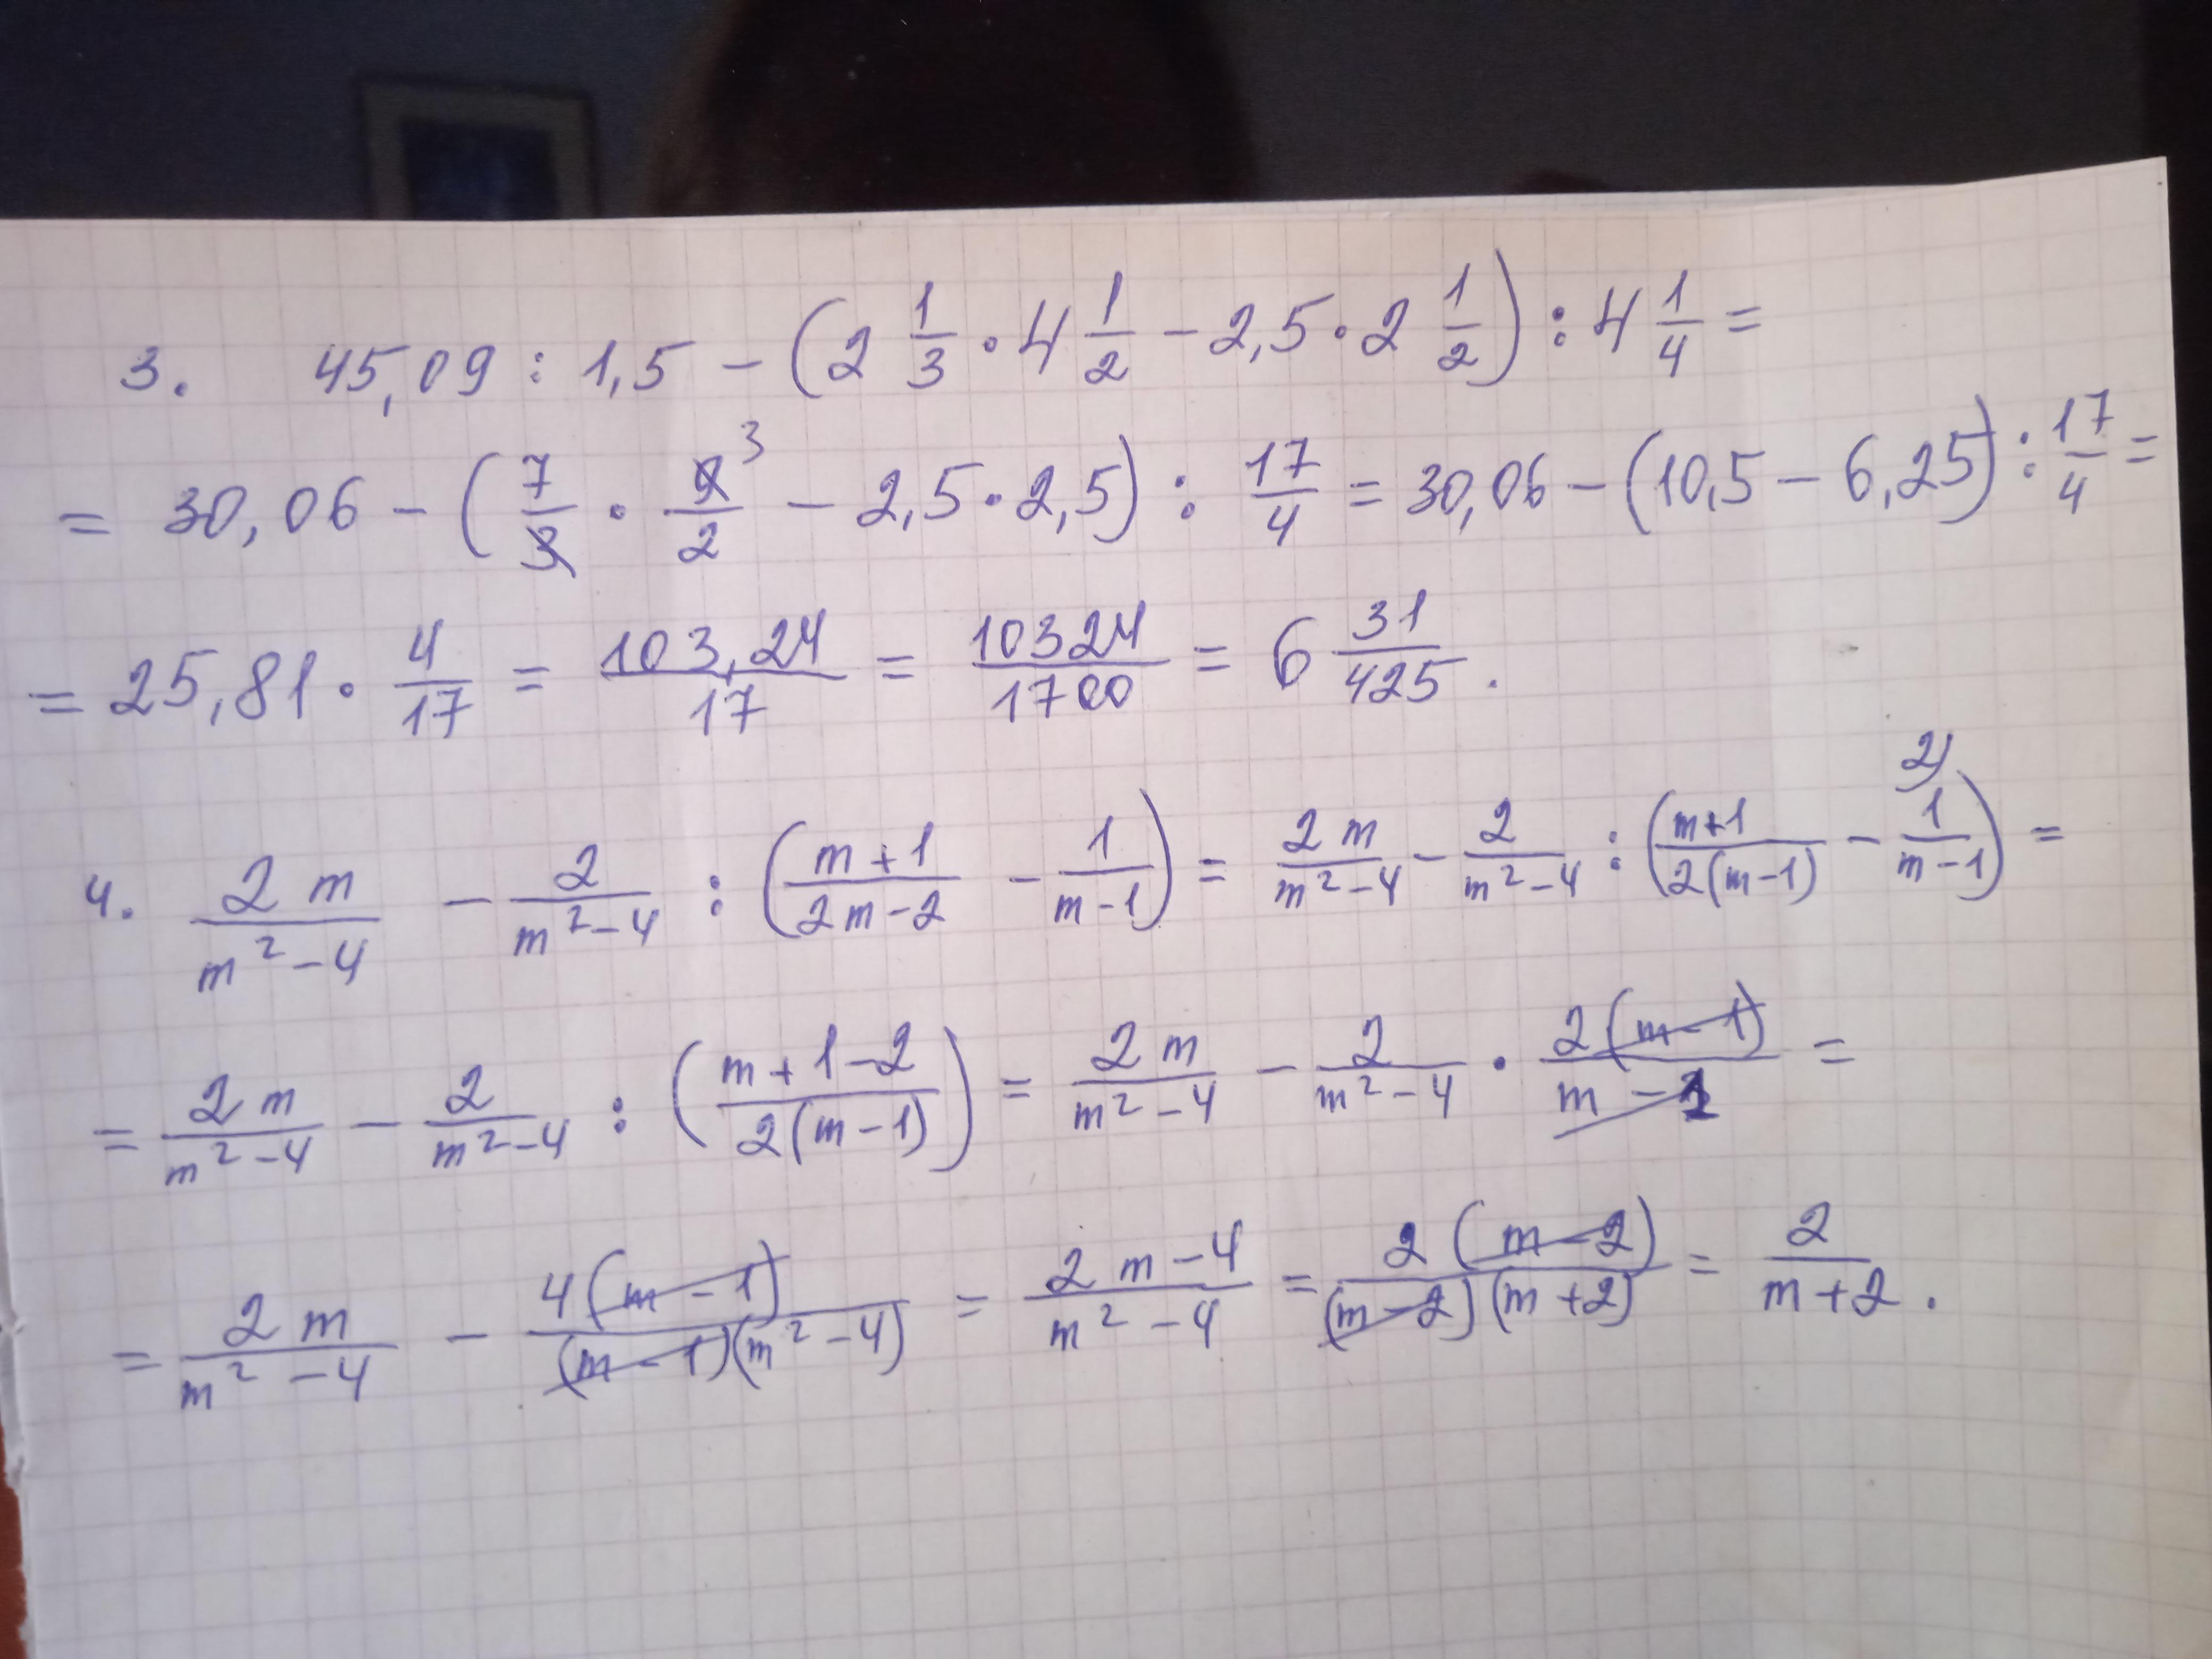 3. 45,09 : 1,5 - (2 1/3 · 4 1/2 - 2,5 · 2 1/2) : 4 1/4 =
= 30,06 - (7/3 · 9/2 3 - 2,5 · 2,5) : 17/4 = 30,06 - (10,5 - 6,25) : 17/4 =
= 25,81 · 4/17 = 103,24/17 = 10324/1700 = 6 31/425.
4. 2m/(m²-4) - 2/(m²-4) : ((m+1)/(2m-2) - 1/(m-1)) = 2m/(m²-4) - 2/(m²-4) : ((m+1)/(2(m-1)) - 2) 1/(m-1)) =
= 2m/(m²-4) - 2/(m²-4) : ((m+1-2)/(2(m-1))) = 2m/(m²-4) - 2/(m²-4) · 2(m-1)/(m-1) =
= 2m/(m²-4) - 4(m-1)/((m-1)(m²-4)) = (2m-4)/(m²-4) = 2(m-2)/((m-2)(m+2)) = 2/(m+2).